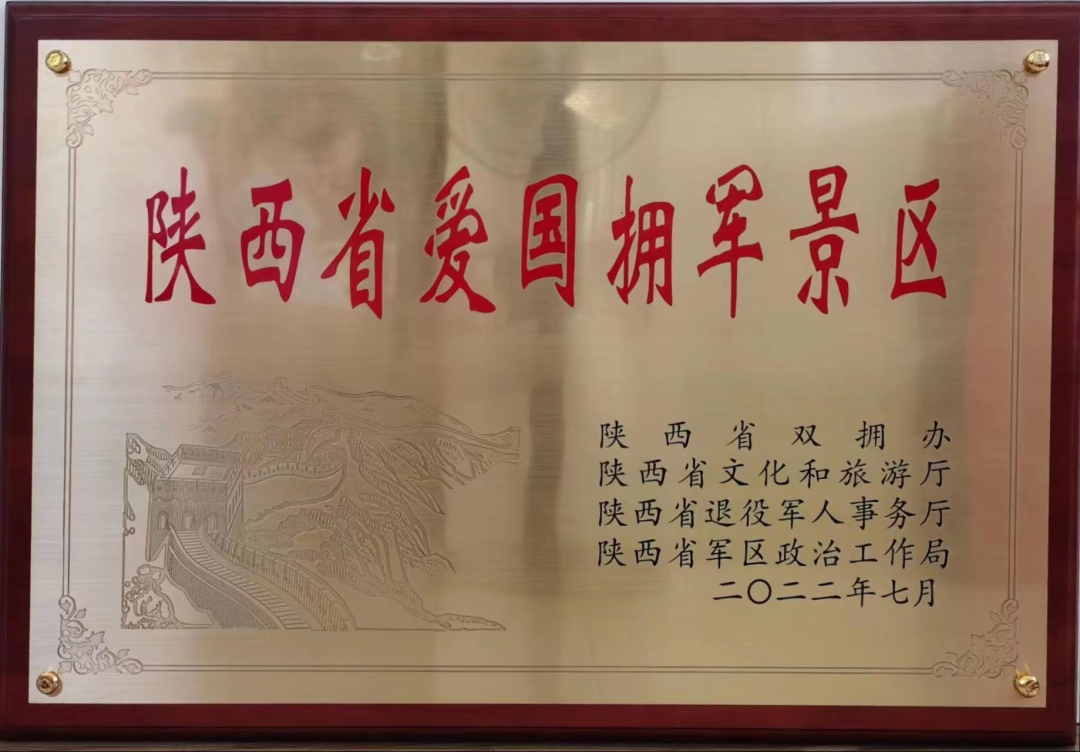 陕西省爱国拥军景区
陕西省双拥办
陕西省文化和旅游厅
陕西省退役军人事务厅
陕西省军区政治工作局
二〇二二年七月